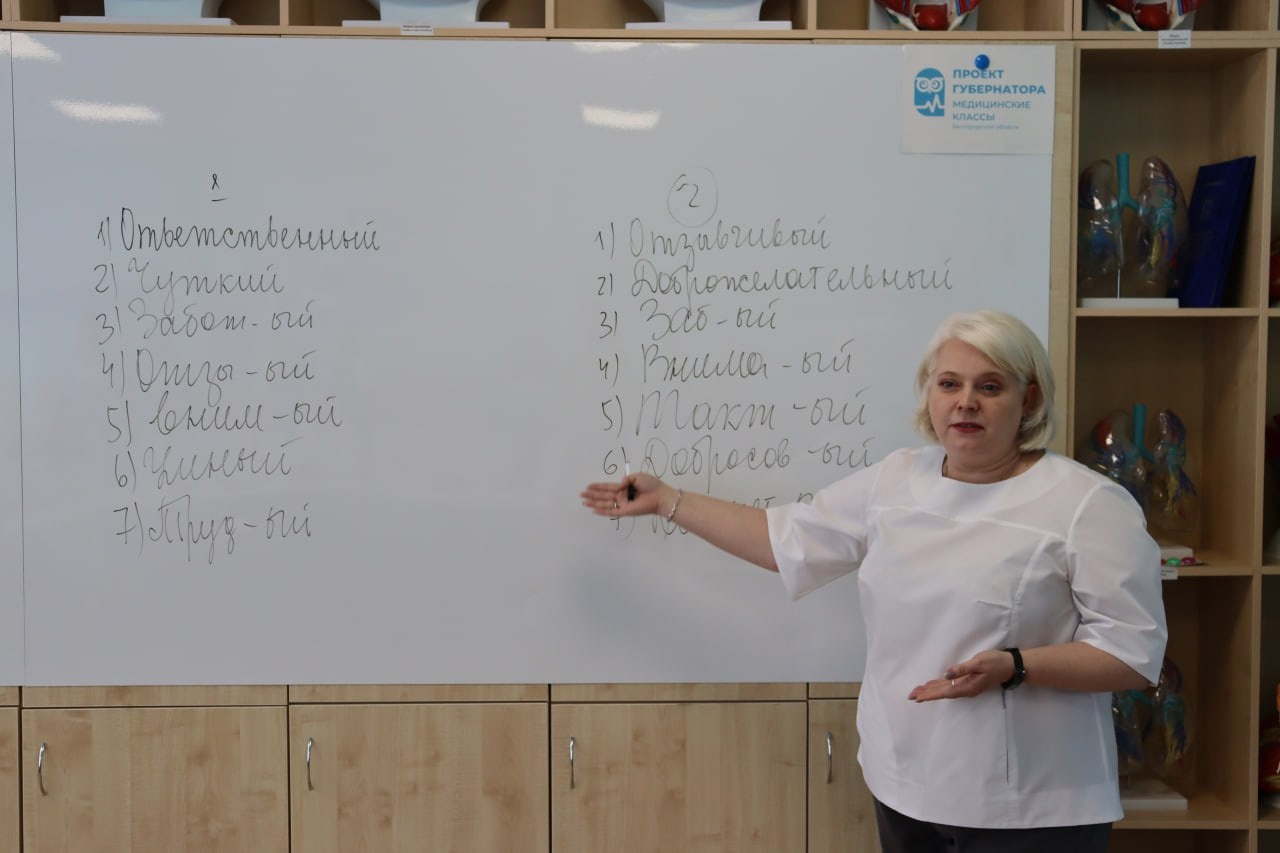 ПРОЕКТ
ГУБЕРНАТОРА
МЕДИЦИНСКИЕ
КЛАССЫ
Белгородской области
1) Ответственный
2) Чуткий
3) Забот-ый
4) Отзы-ый
5) вним-ый
6) Умный
7) Труд-ый
2
1) Отзывчивый
2) Доброжелательный
3) Заб-ый
4) Внима-ый
5) Такт-ый
6) Добросов-ый